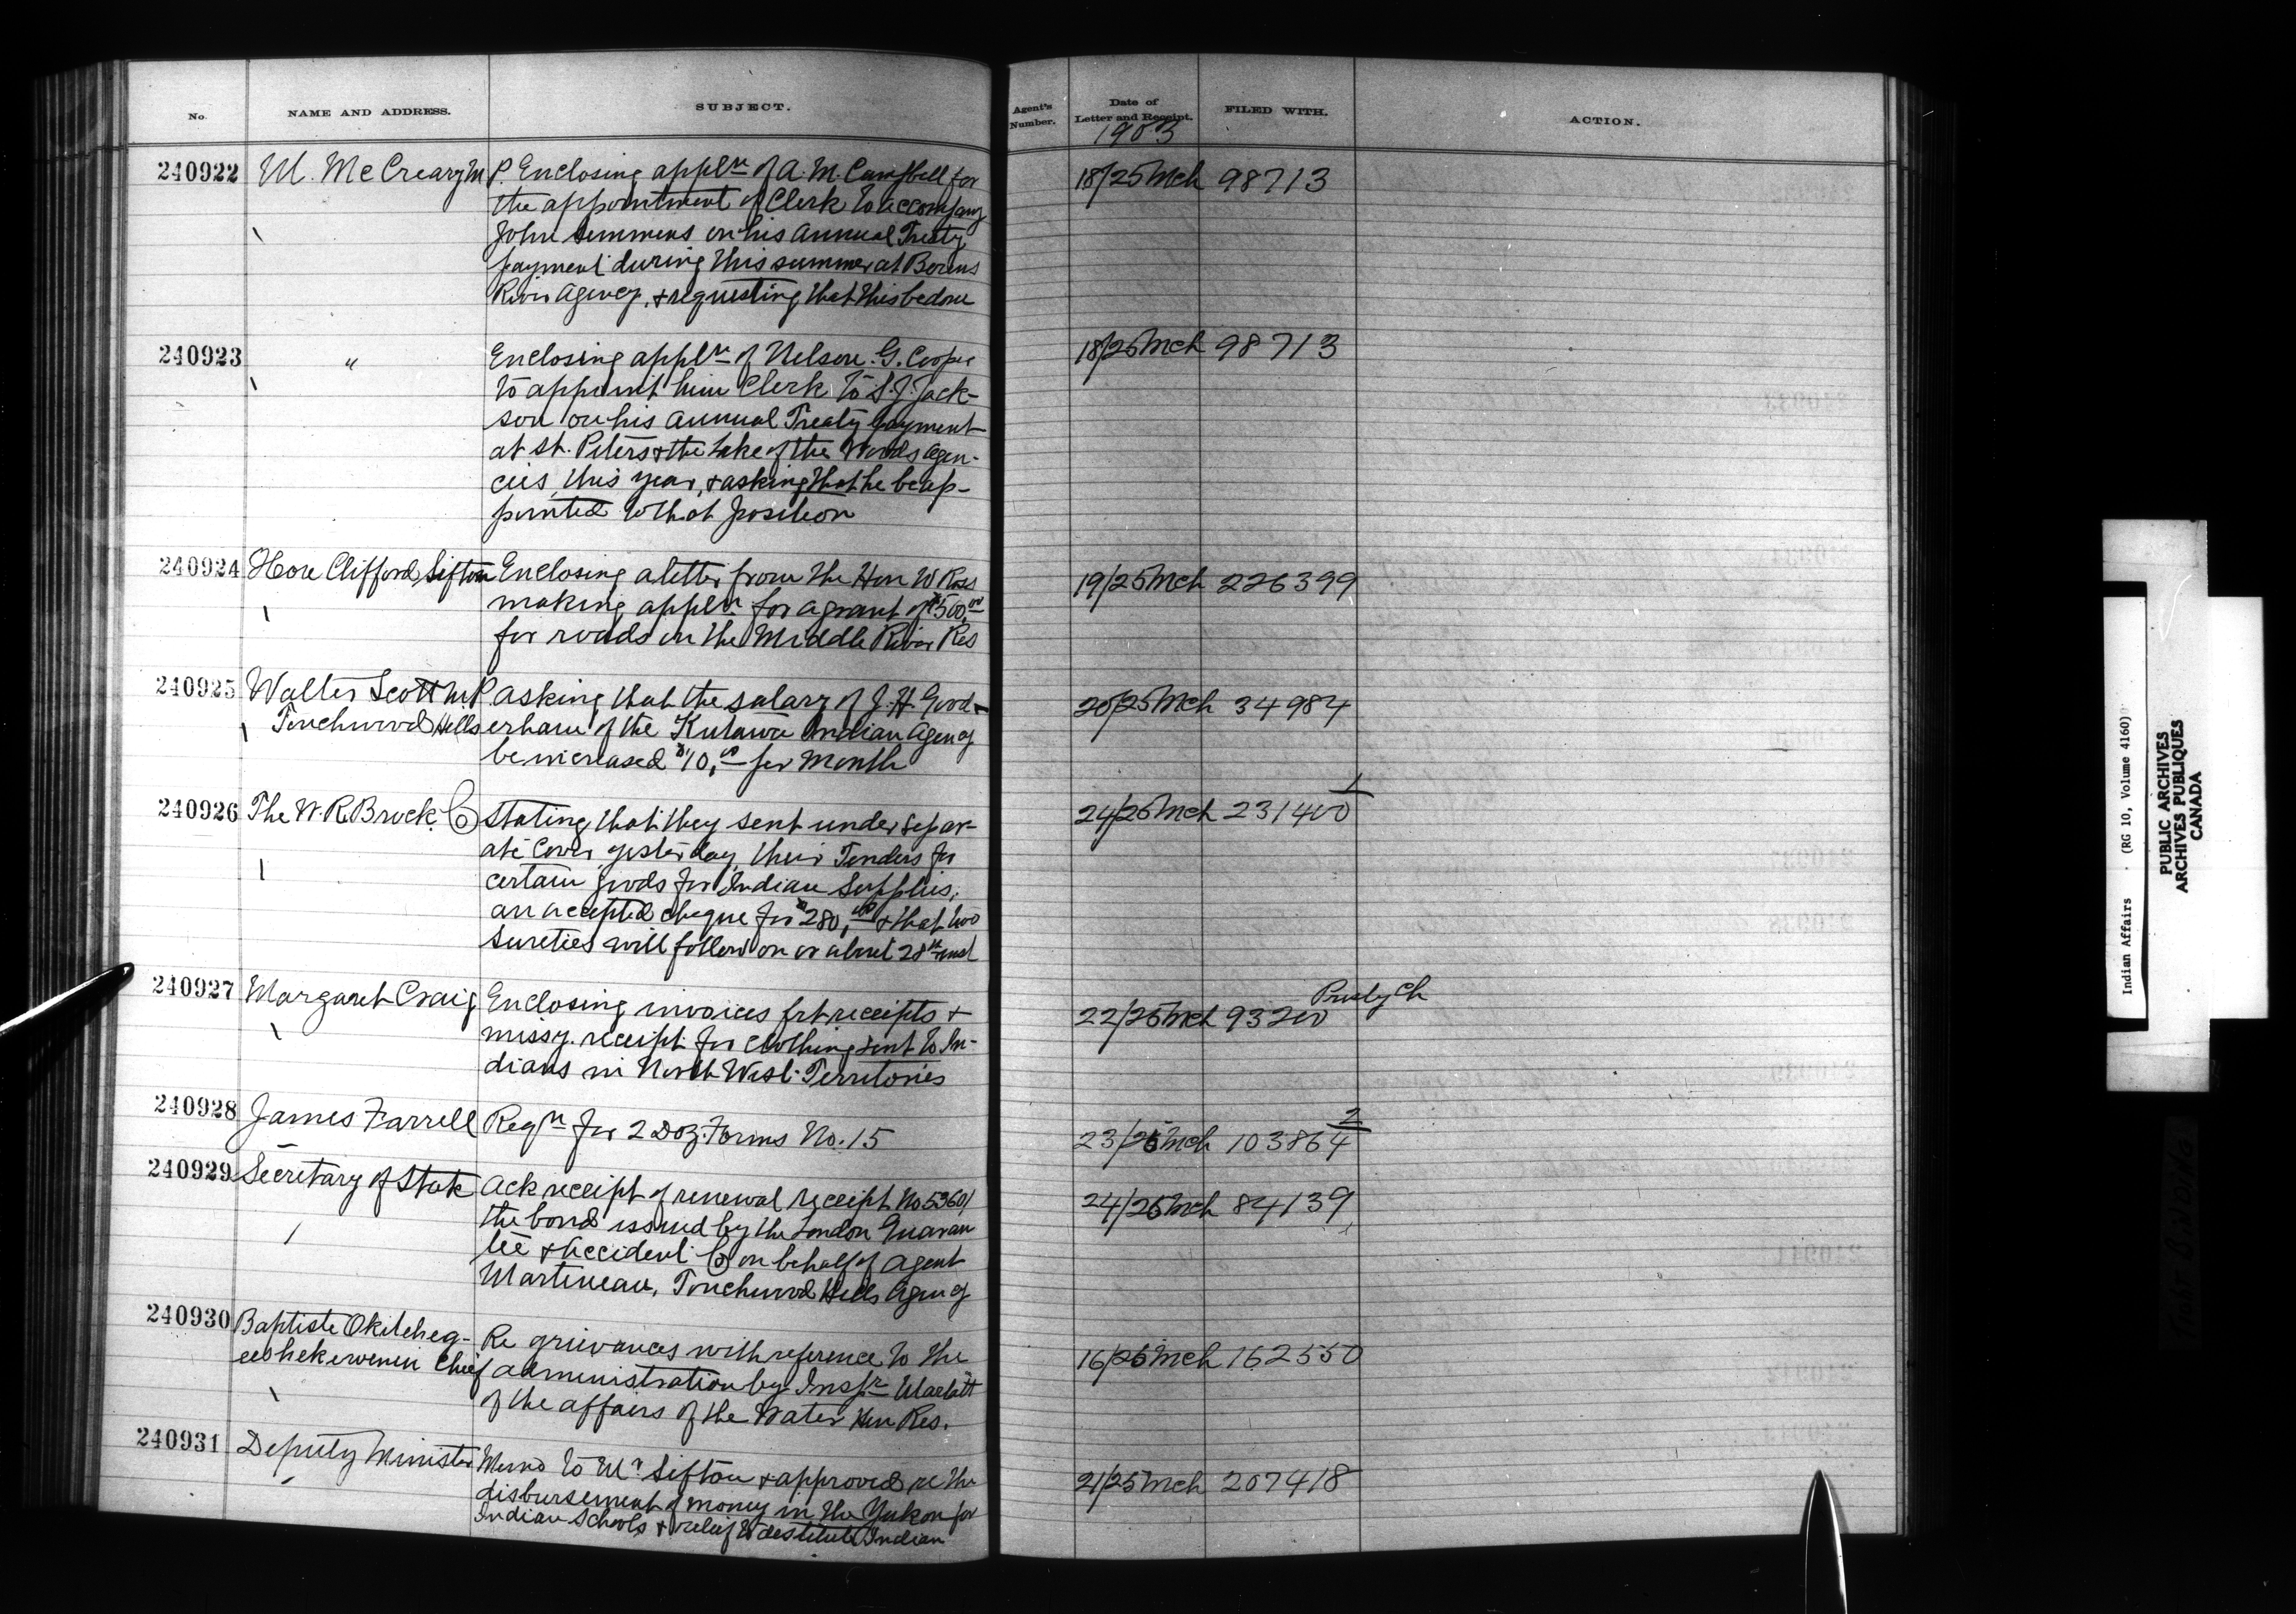 No.
NAME AND ADDRESS.
SUBJECT.
Agent's Number.
Date of Letter and Receipt.
1903
FILED WITH.
ACTION.
240922 W. McCreary M P. Enclosing appln of A. M. Campbell for
the appointment of Clerk to accompany
John Semmens on his annual Treaty
payment during this summer at Berens
River Agency, & requesting that this be done
18/25 Mch 98713
240923 " Enclosing appln of Nelson G. Cooper
to appoint him Clerk to S. J. Jack-
son on his annual Treaty payment
at St. Peters & the Lake of the Woods Agen-
cies, this year, & asking that he be ap-
pointed to that position
18/25 Mch 98713
240924 Hon Clifford Sifton Enclosing a letter from the Hon W Ross
making appln for a grant of $500.00
for roads on the Middle River Res
19/25 Mch 226399
240925 Walter Scott M P. asking that the salary of J. H. Good-
Touchwood Hills erham of the Kutawa Indian Agency
be increased $10.00 per month
20/25 Mch 34984
240926 The W. R. Brock Co Stating that they sent under separ-
ate cover yesterday, their Tenders for
certain goods for Indian Supplies,
an accepted cheque for $280.00 & that two
sureties will follow on or about 28th inst
24/25 Mch 231400 1
240927 Margaret Craig Enclosing invoices frt receipts &
missy. receipt for clothing sent to In-
dians in North West Territories
22/25 Mch 93200 Presby Ch
240928 James Farrell Reqn for 2 Doz. Forms No. 15
23/25 Mch 103864 2
240929 Secretary of State Ack receipt of renewal receipt No 53601
the bond issued by the London Guaran
tee & Accident Co on behalf of Agent
Martineau, Touchwood Hills Agency
24/25 Mch 84139
240930 Baptiste Okitcheg-
eeshekewenin Chief
Re grievances with reference to the
administration by Inspr Marlatt
of the affairs of the Water Hen Res.
16/25 Mch 162550
240931 Deputy Minister Memo to Mr Sifton & approved re the
disbursement of money in the Yukon for
Indian Schools & relief to destitute Indian
21/25 Mch 207418
Indian Affairs . (RG 10, Volume 4160)
PUBLIC ARCHIVES
ARCHIVES PUBLIQUES
CANADA